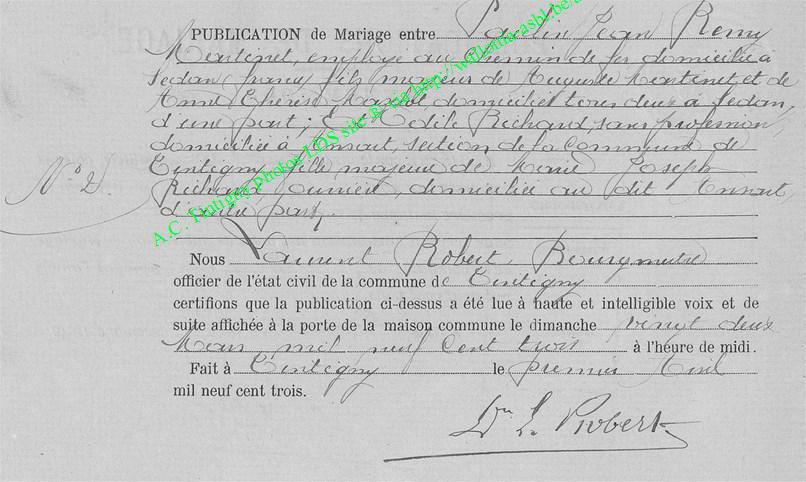 PUBLICATION de Mariage entre Paulin Jean Remy
Martinet, employé au chemin de fer domicilié à
Sedan france fils majeur de Auguste Martinet et de
Anne Thérèse domiciliés tous deux à Sedan,
d'une part; Et Odile Richard, sans profession
domiciliée à Ansart, section de la Commune de
Tintigny fille majeure de Marie Joseph
Richard, ouvrière, domiciliée au dit Ansart,
d'autre part.
N° 2
A.C. Tintigny photos LDS site & via http://wallonia-asbl.be/
Nous Laurent Robert, Bourgmestre
officier de l'état civil de la commune de Tintigny
certifions que la publication ci-dessus a été lue à haute et intelligible voix et de
suite affichée à la porte de la maison commune le dimanche vingt deux
Mars mil neuf cent trois à l'heure de midi.
Fait à Tintigny le premier Avril
mil neuf cent trois.
L. Robert